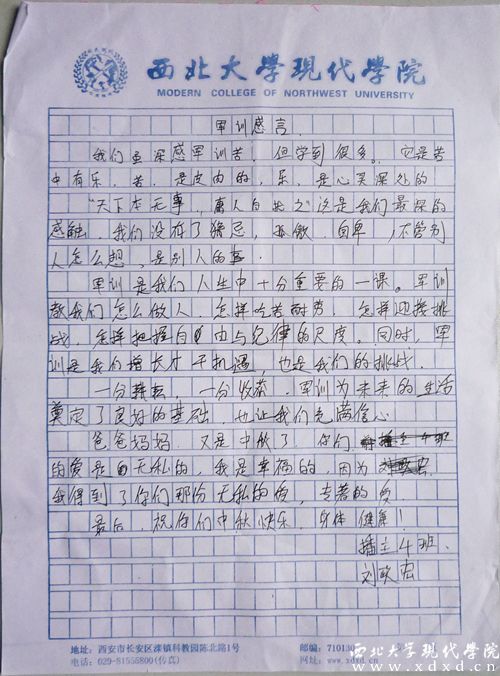 西北大学現代学院
MODERN COLLEGE OF NORTHWEST UNIVERSITY
军训感言.
我们虽深感军训苦, 但学到很多。它是苦
中有乐, 苦, 是皮肉的, 乐, 是心灵深处的
"天下本无事, 庸人自扰之"这是我们最深的
感触, 我们没有了猜忌, 孤傲, 自卑, 不管别
人怎么想, 是别人的事.
军训是我们人生中十分重要的一课。军训
教我们怎么做人, 怎样吃苦耐劳, 怎样迎接挑
战, 怎样把握自由与纪律的尺度。同时, 军
训是我们增长才干机遇, 也是我们的挑战.
一分耕耘, 一分收获. 军训为未来的生活
奠定了良好的基础. 也让我们充满信心
爸爸妈妈, 又是中秋了. 你们
的爱是无私的, 我是幸福的, 因为
我得到了你们那份无私的爱, 专著的爱.
最后, 祝你们中秋快乐, 身体健康!
播主4班.
刘政宏
地址: 西安市长安区滦镇科教园陈北路1号
邮编: 7101
电话: 029-81555800(传真)
网址: www.xdxd.cn
西北大学现代学院
www.xdxd.cn